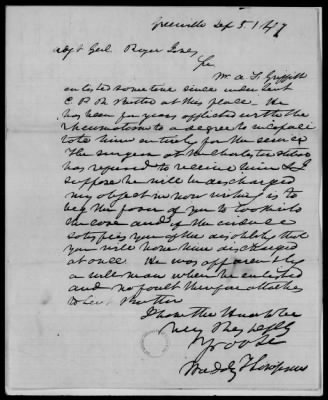 Greenville Sep 5. 1847
Adjt Genl Roger Jones
Sir
Mr A. T. Griffith
enlisted some time since under Lieut
C P R Butler at this place. He
has been for years afflicted with the
rheumatism to a degree to incapaci
tate him entirely for the service
The surgeon at the Charleston station
has refused to receive him &
suppose he will be discharged
My object in now writing is to
beg the favor of you to look into
the case and if the evidence
satisfies you of the disability that
you will have him discharged
at once. He was apparently
a well man when he enlisted
and no fault therefore attaches
to Lieut Butler
I have the Honor to be
Very Respectfully
Yr Ob St
Waddy Thompson